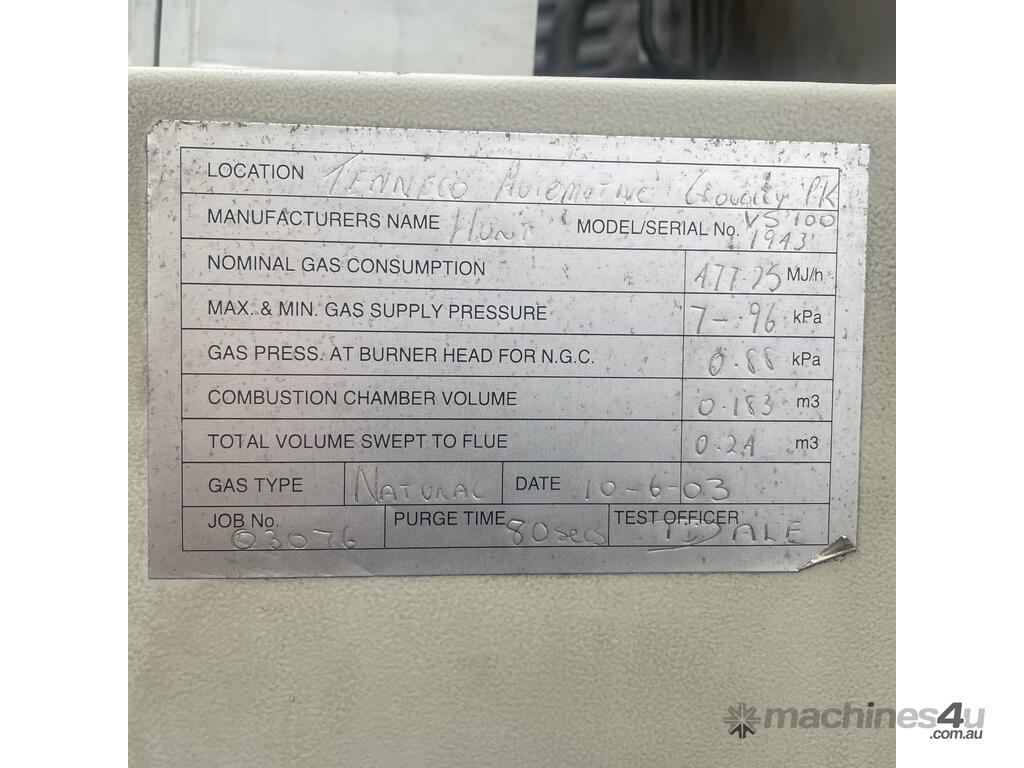 LOCATION TENNECO AUTOMOTIVE CLOVELLY PK
MANUFACTURERS NAME HUNT MODEL/SERIAL No. VS 100 1943
NOMINAL GAS CONSUMPTION 477.25 MJ/h
MAX. & MIN. GAS SUPPLY PRESSURE 7-.96 kPa
GAS PRESS. AT BURNER HEAD FOR N.G.C. 0.88 kPa
COMBUSTION CHAMBER VOLUME 0.183 m3
TOTAL VOLUME SWEPT TO FLUE 0.21 m3
GAS TYPE NATURAL DATE 10-6-03
JOB No. 03076 PURGE TIME 80secs TEST OFFICER DALE
machines4u
.com.au